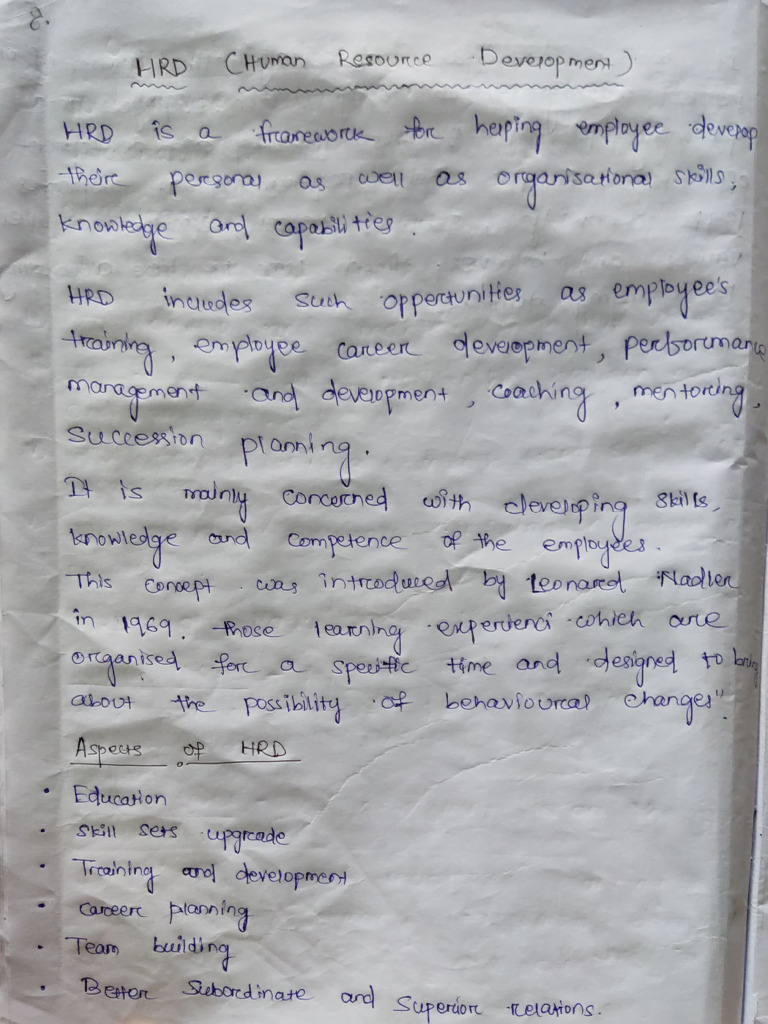 2.
HRD (Human Resource Development)
HRD is a framework for helping employee develop
their personal as well as organisational skills,
knowledge and capabilities.
HRD includes such oppertunities as employee's
training, employee career development, performance
management and development, coaching, mentoring,
succession planning.
It is mainly concerned with developing skills,
knowledge and competence of the employees.
This concept was introduced by Leonard Nadler
in 1969. those learning experienci which are
organised for a specific time and designed to bring
about the possibility of behavioural changes".
Aspects of HRD
• Education
• Skill sets upgrade
• Training and development
• Career planning
• Team building
• Better Subordinate and Superior relations.